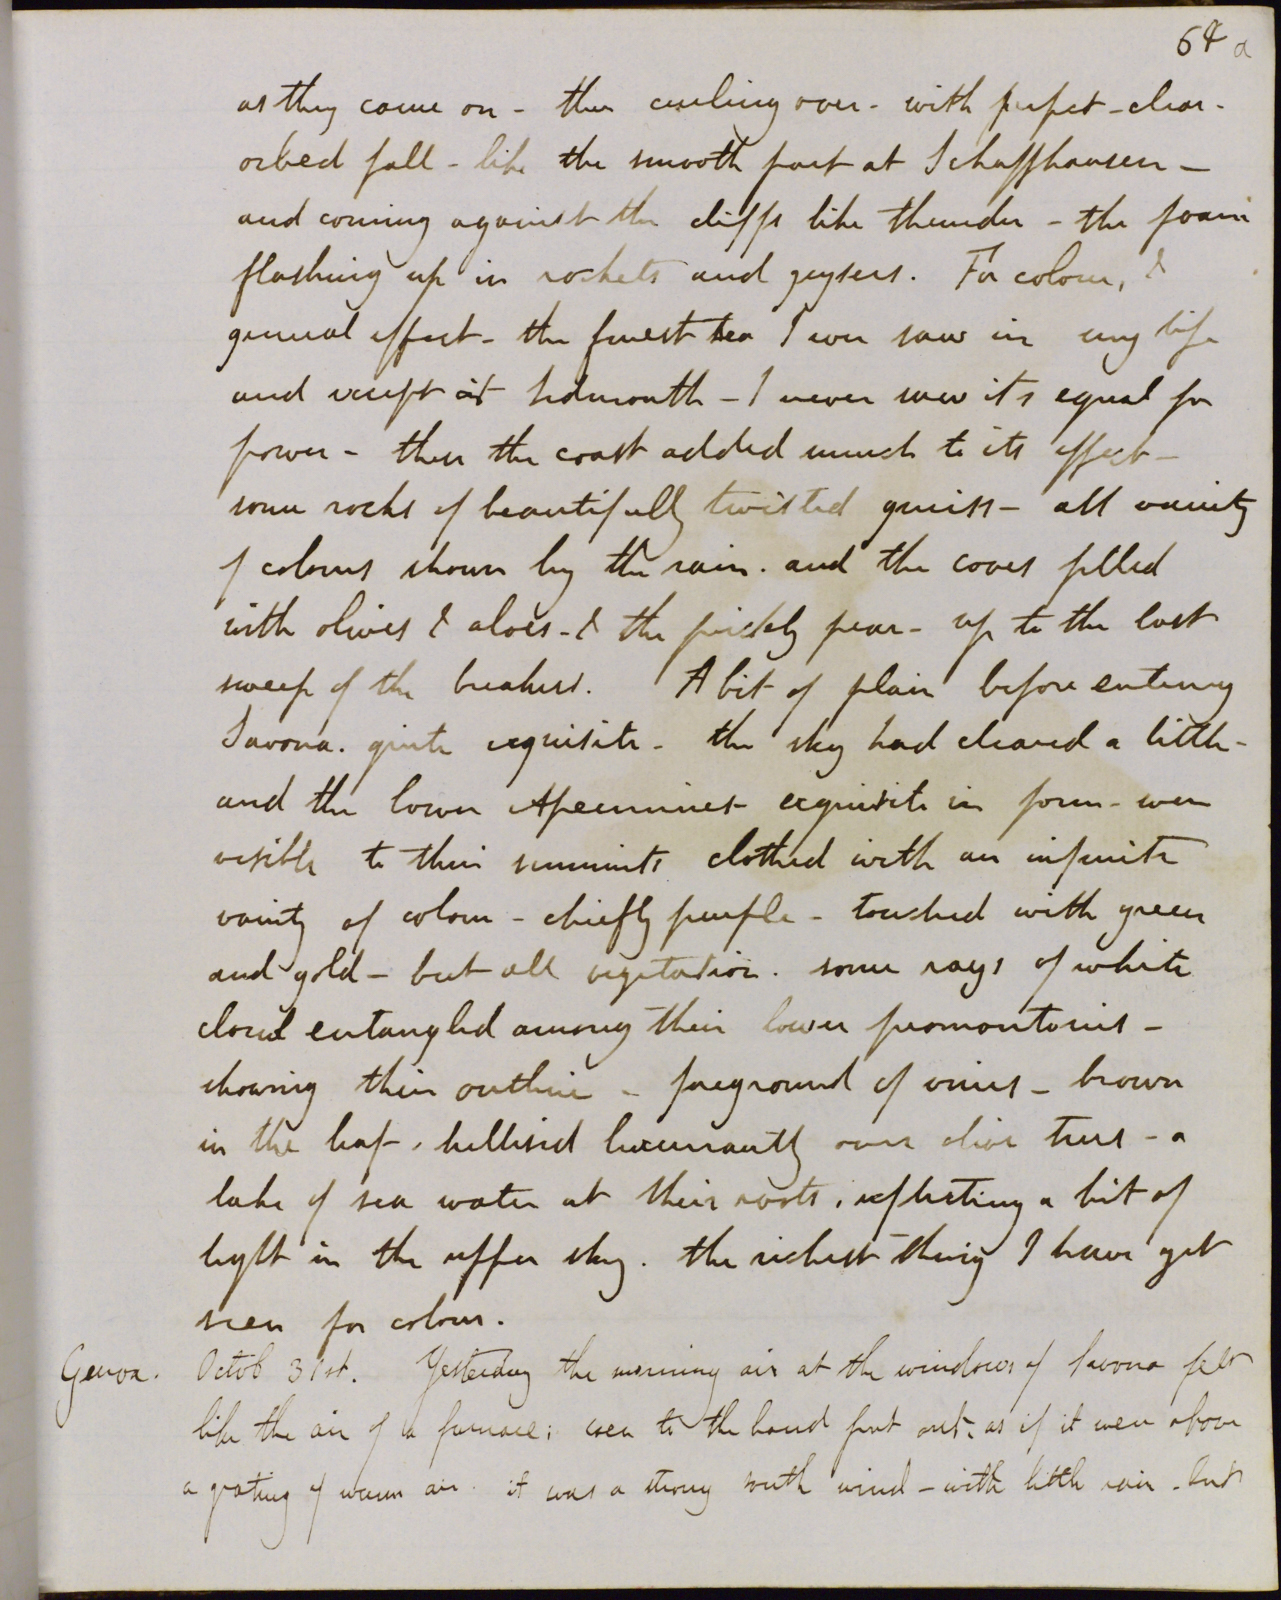 64 a
as they come on - then curling over - with perfect - clear -
orbed fall - like the smooth part at Schaffhausen -
and coming against the cliffs like thunder - the foam
flashing up in rockets and geysers. For colour, &
general effect - the finest sea I ever saw in my life
and except at Sidmouth - I never saw its equal for
power - then the coast added much to its effect -
some rocks of beautifully twisted gneiss - all variety
of colours shown by the rain. and the coves filled
with olives & aloes - & the prickly pear - up to the last
sweep of the breakers. A bit of plain before entering
Savona. quite exquisite - the sky had cleared a little -
and the lower Apennines - exquisite in form - were
visible to their summits clothed with an infinite
variety of colour - chiefly purple - touched with green
and gold - but all vegetation. some rays of white
cloud entangled among their lower promontories -
showing their outline - foreground of vines - brown
in the leaf, trellised luxuriantly over olive trees - a
lake of sea water at their roots, reflecting a bit of
light in the upper sky. the richest thing I have yet
seen for colour.
Genoa. Octob 31st. Yesterday the morning air at the windows of Savona felt
like the air of a furnace; even to the hand put out, as if it were above
a grating of warm air. it was a strong south wind - with little rain. but